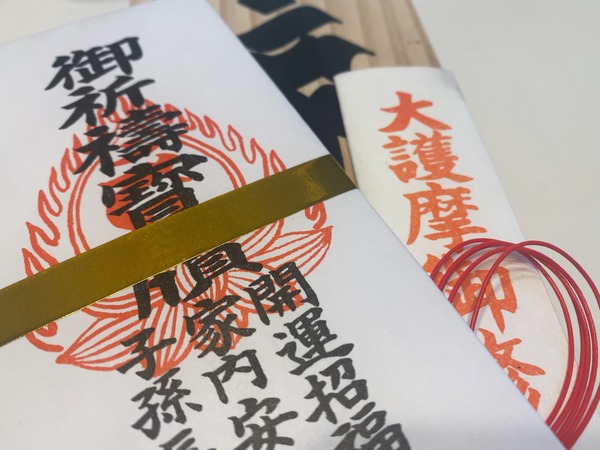 御祈禱寳牘
開運招福
家内安
子孫長
大護摩御修